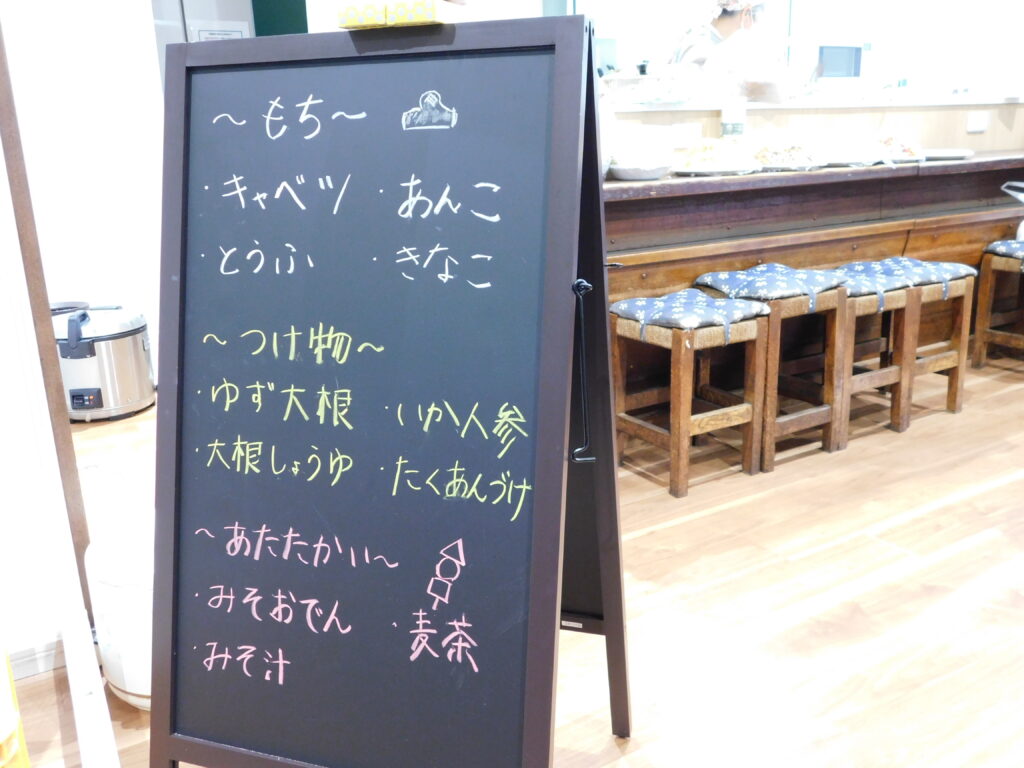 ～もち～
・キャベツ ・あんこ
・とうふ ・きなこ
～つけ物～
・ゆず大根 ・いか人参
・大根しょうゆ ・たくあんづけ
～あたたかい～
・みそおでん ・麦茶
・みそ汁